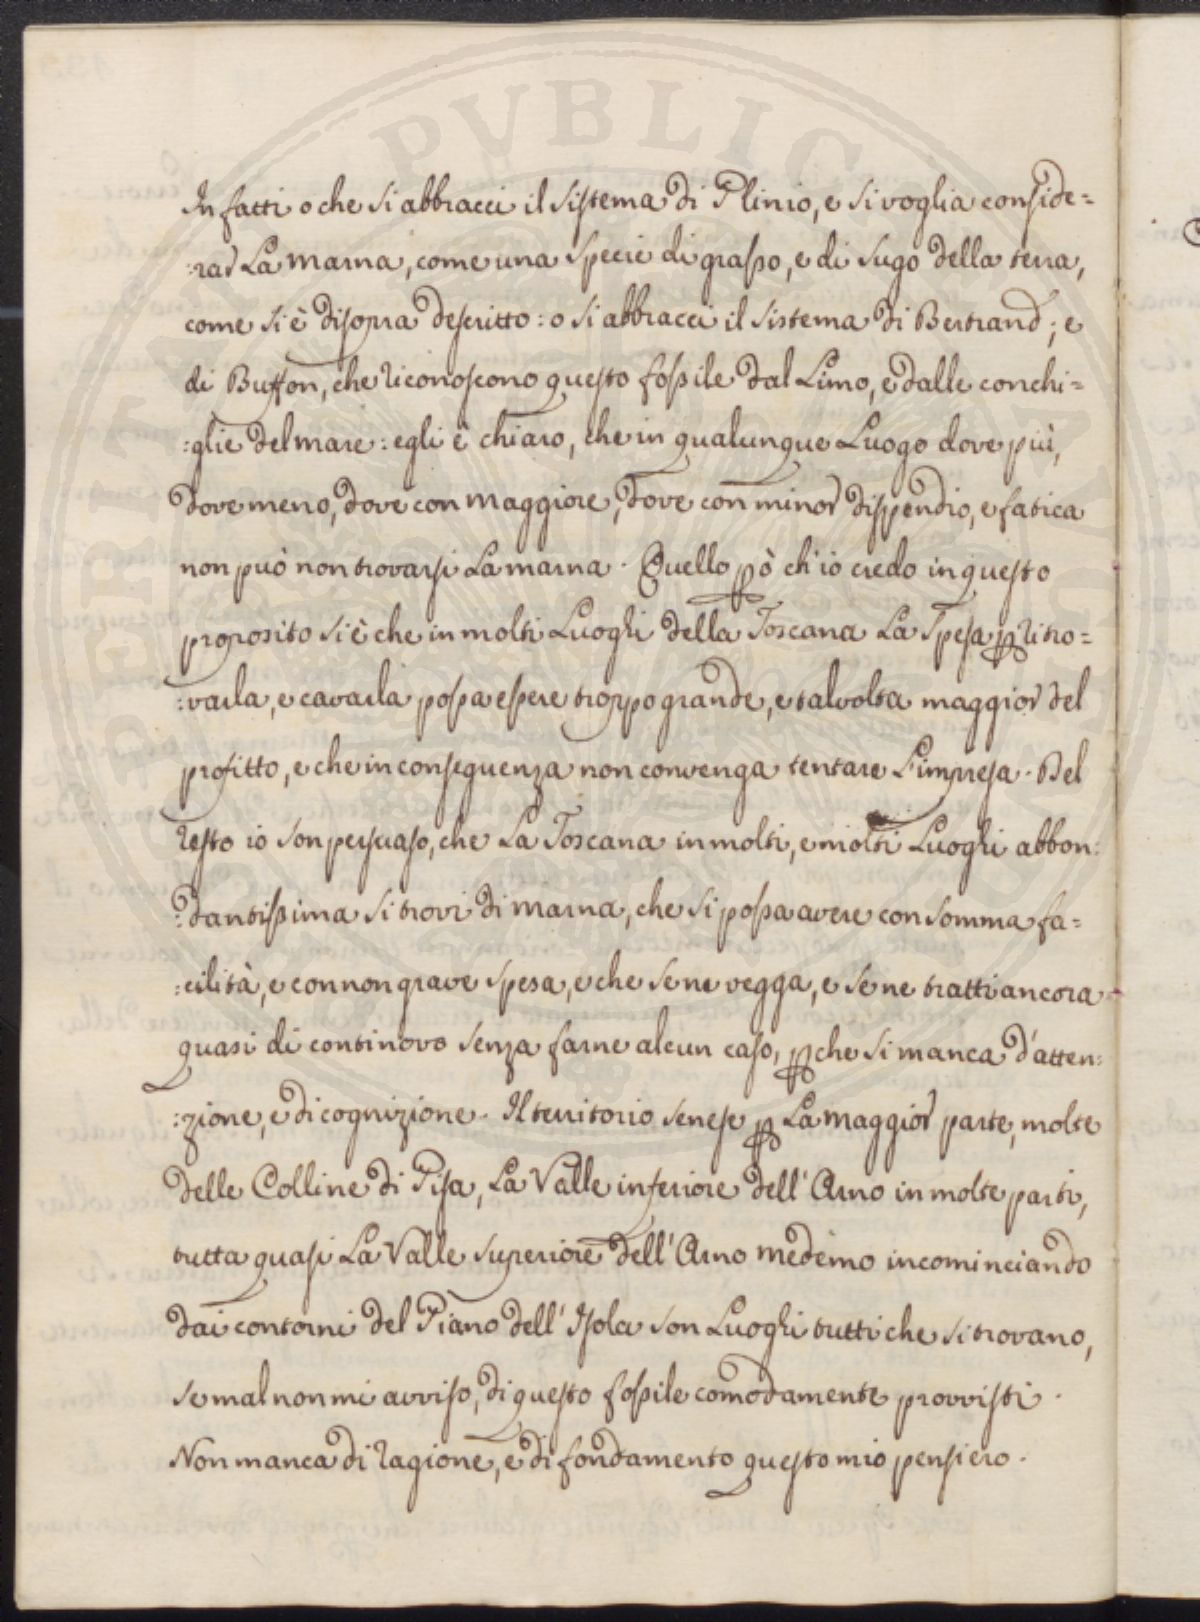 In fatti o che si abbracci il sistema di Plinio, e si voglia conside=
:rar La marna, come una specie di grasso, e di sugo della terra,
come si è disopra descritto: o si abbracci il sistema di Bertrand; e
di Buffon, che riconoscono questo fossile dal Limo, e dalle conchi=
:glie del mare: egli è chiaro, che in qualunque Luogo dove più,
dove meno, dove con maggiore, dove con minor dispendio, e fatica
non può non trovarsi La marna. Quello pò ch'io credo in questo
proposito si è che in molti Luoghi della Toscana La Spesa p ritro=
:varla, e cavarla possa essere troppo grande, e talvolta maggior del
profitto, e che in conseguenza non convenga tentare L'impresa. Del
resto io son persuaso, che La Toscana in molti, e molti Luoghi abbon:
:dantissima si trovi di marna, che si possa avere con somma fa=
:cilità, e con non grave spesa, e che se ne vegga, e se ne tratti ancora
quasi di continovo senza farne alcun caso, pche si manca d'atten:
:zione, e di cognizione. Il territorio senese p La maggior parte, molte
delle Colline di Pisa, La Valle inferiore dell'Arno in molte parti,
tutta quasi La Valle superiore dell'Arno medemo incominciando
dai contorni del Piano dell'Isola son Luoghi tutti che si trovano,
se mal non mi avviso, di questo fossile comodamente provvisti.
Non manca di ragione, e di fondamento questo mio pensiero.
PERITANTE PUBLIC